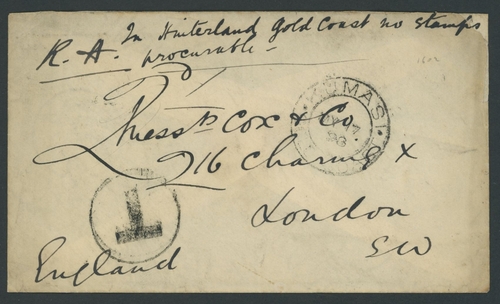 In Hinterland Gold Coast no stamps
R. A. procurable -
Mess rs Cox & Co
16 Charing X
London
SW
England
KUMASI
T